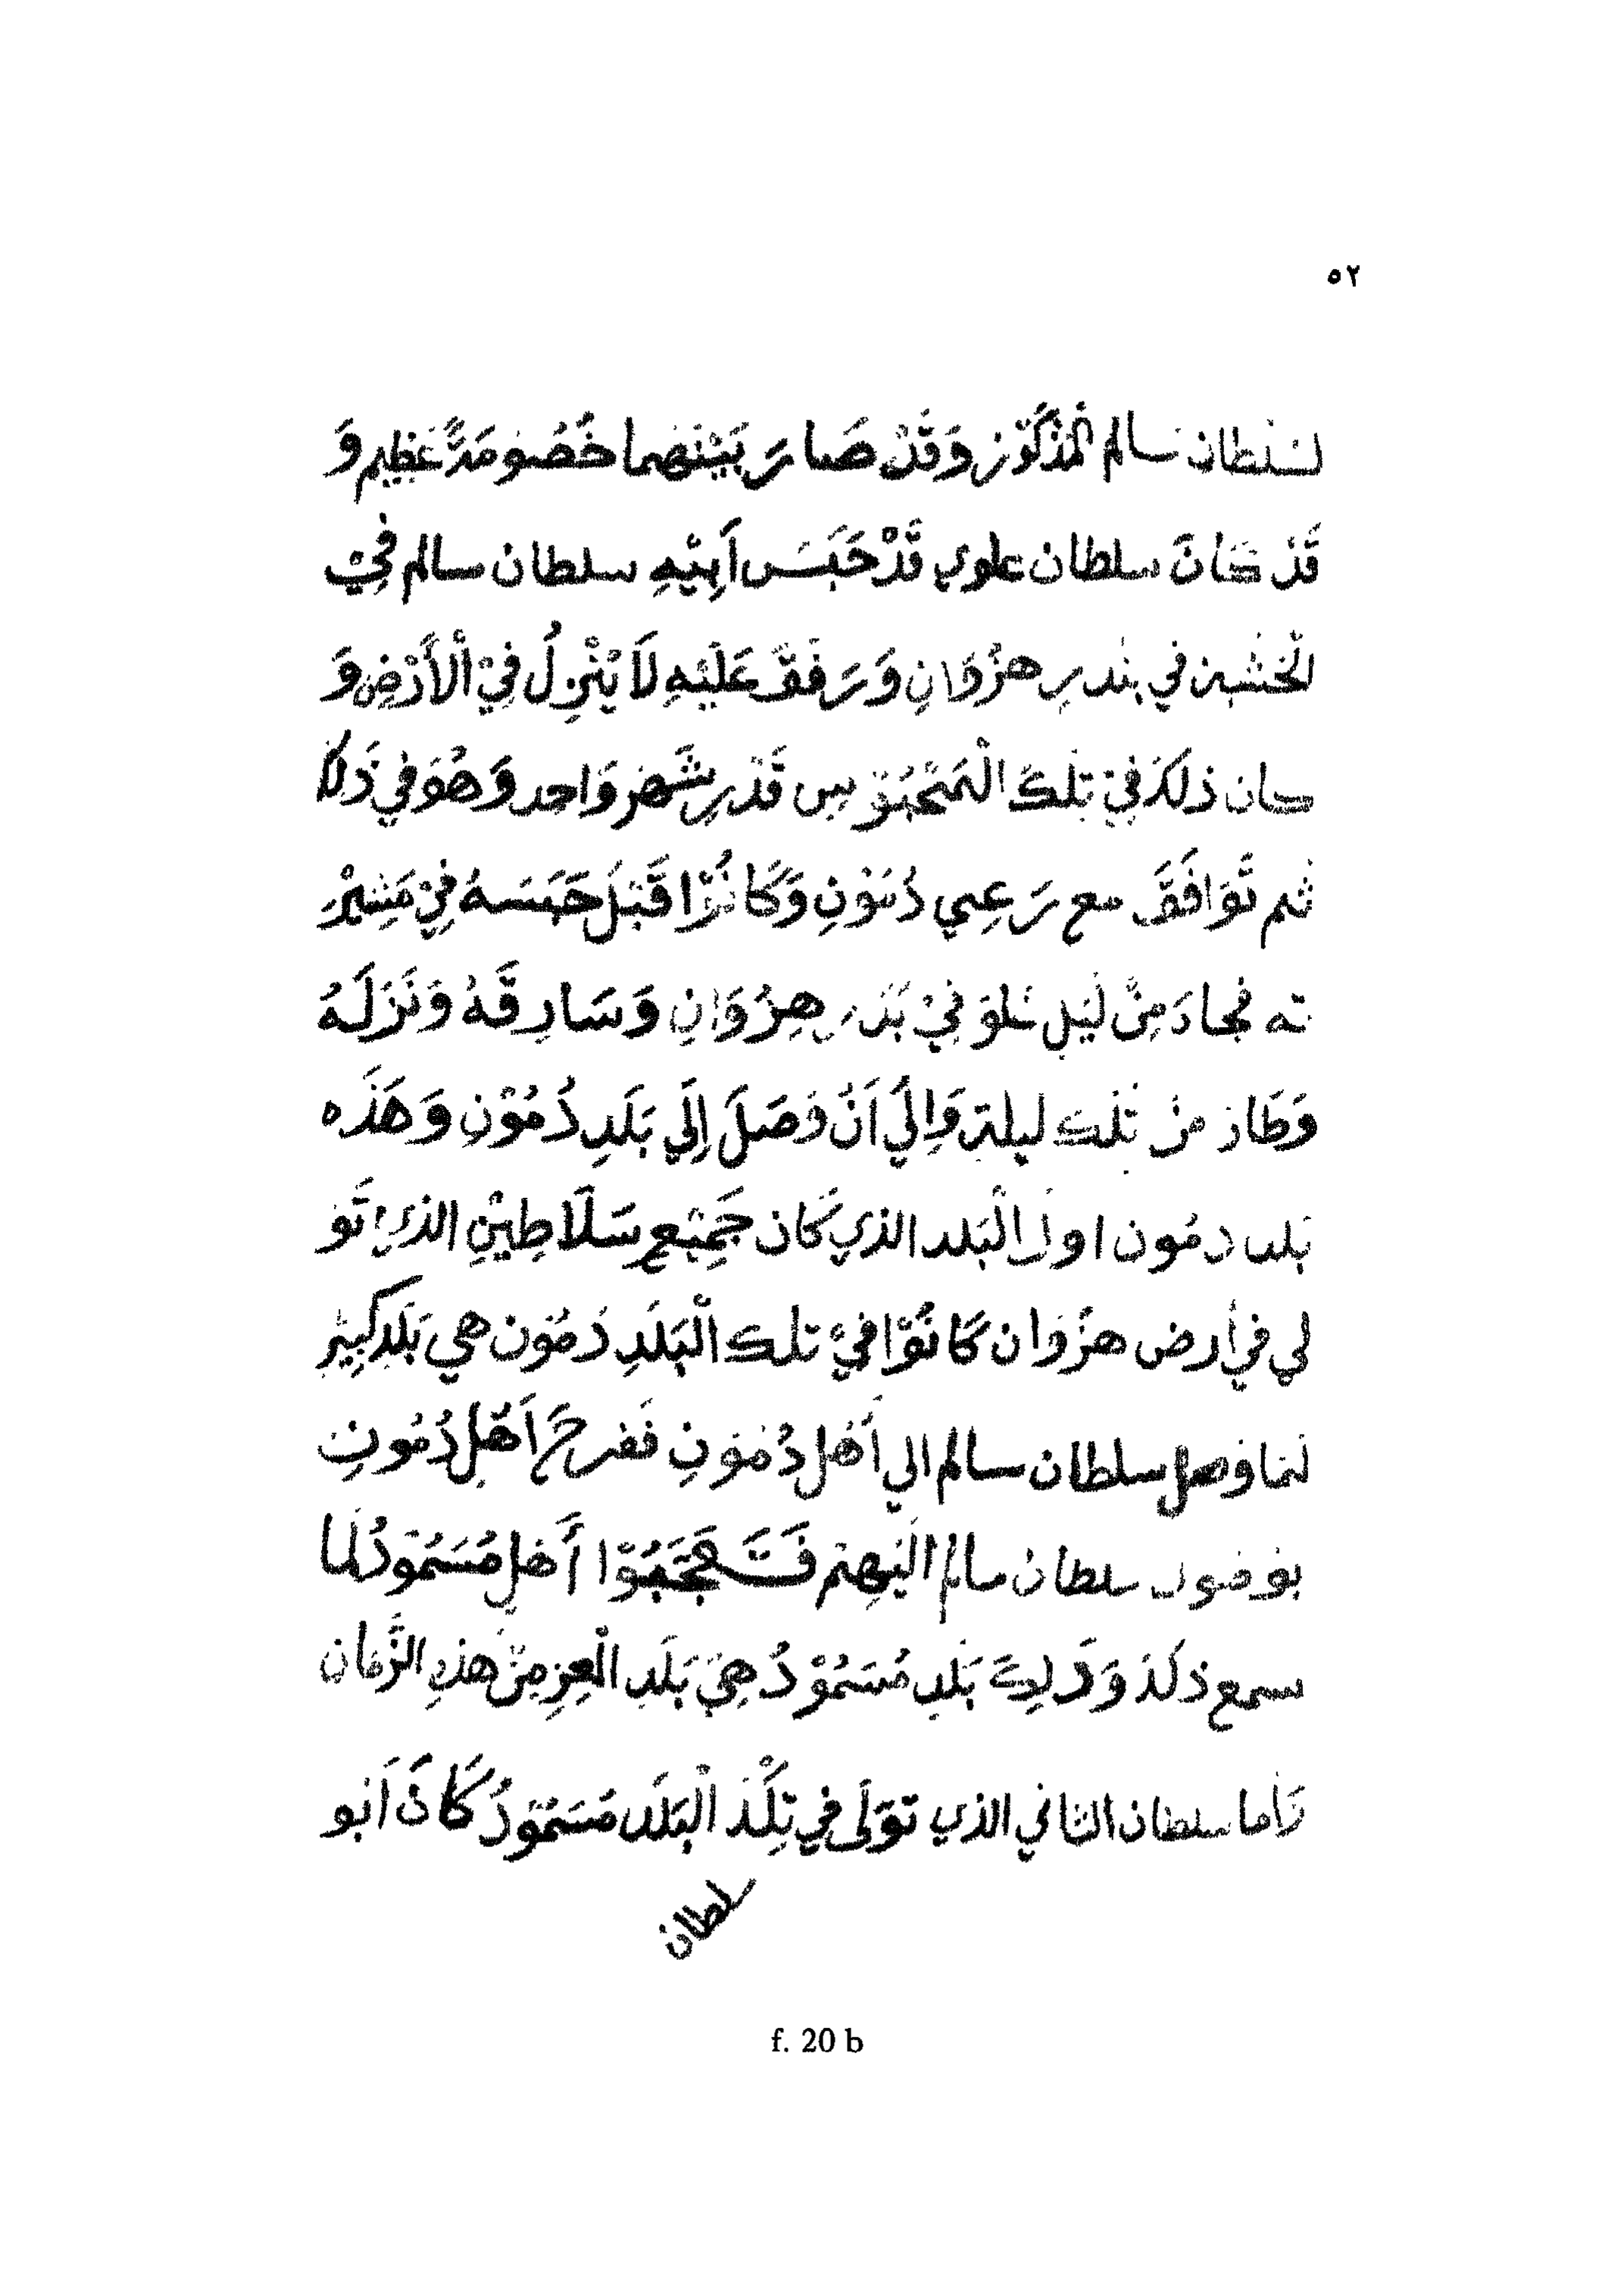 ٥٢
لسلطان سالم المذكور وقد صار بينهما خصومة عظيم و
قد كان سلطان علوي قد حبس أبيه سلطان سالم في
الخشب في بندر هنزوان ورفق عليه لا ينزل في الأرض و
كان ذلك في تلك المحبوس قدر شهر واحد وهو في ذلك
ثم توافق مع رعي دمون وكانوا قبل حبسه في مشير
ته فجاء من ليل في بندر هنزوان وسارقه ونزله
وطار من تلك ليلة وإلي أن وصل إلي بلد دمون وهذه
بلد دمون اول البلد الذي كان جميع سلاطين الذي تو
لي في أرض هنزوان كانوا في تلك البلد دمون هي بلد كبير
لما وصل سلطان سالم الي أهل دمون ففرح أهل دمون
بوصول سلطان سالم اليهم فتعجبوا أهل مسمود لما
سمع ذلك وذلك بلد مسمود هي بلد العز من هذه الزمان
وأما سلطان الثاني الذي تولى في تلك البلد مسمود كان أبو
سلطان
f. 20 b